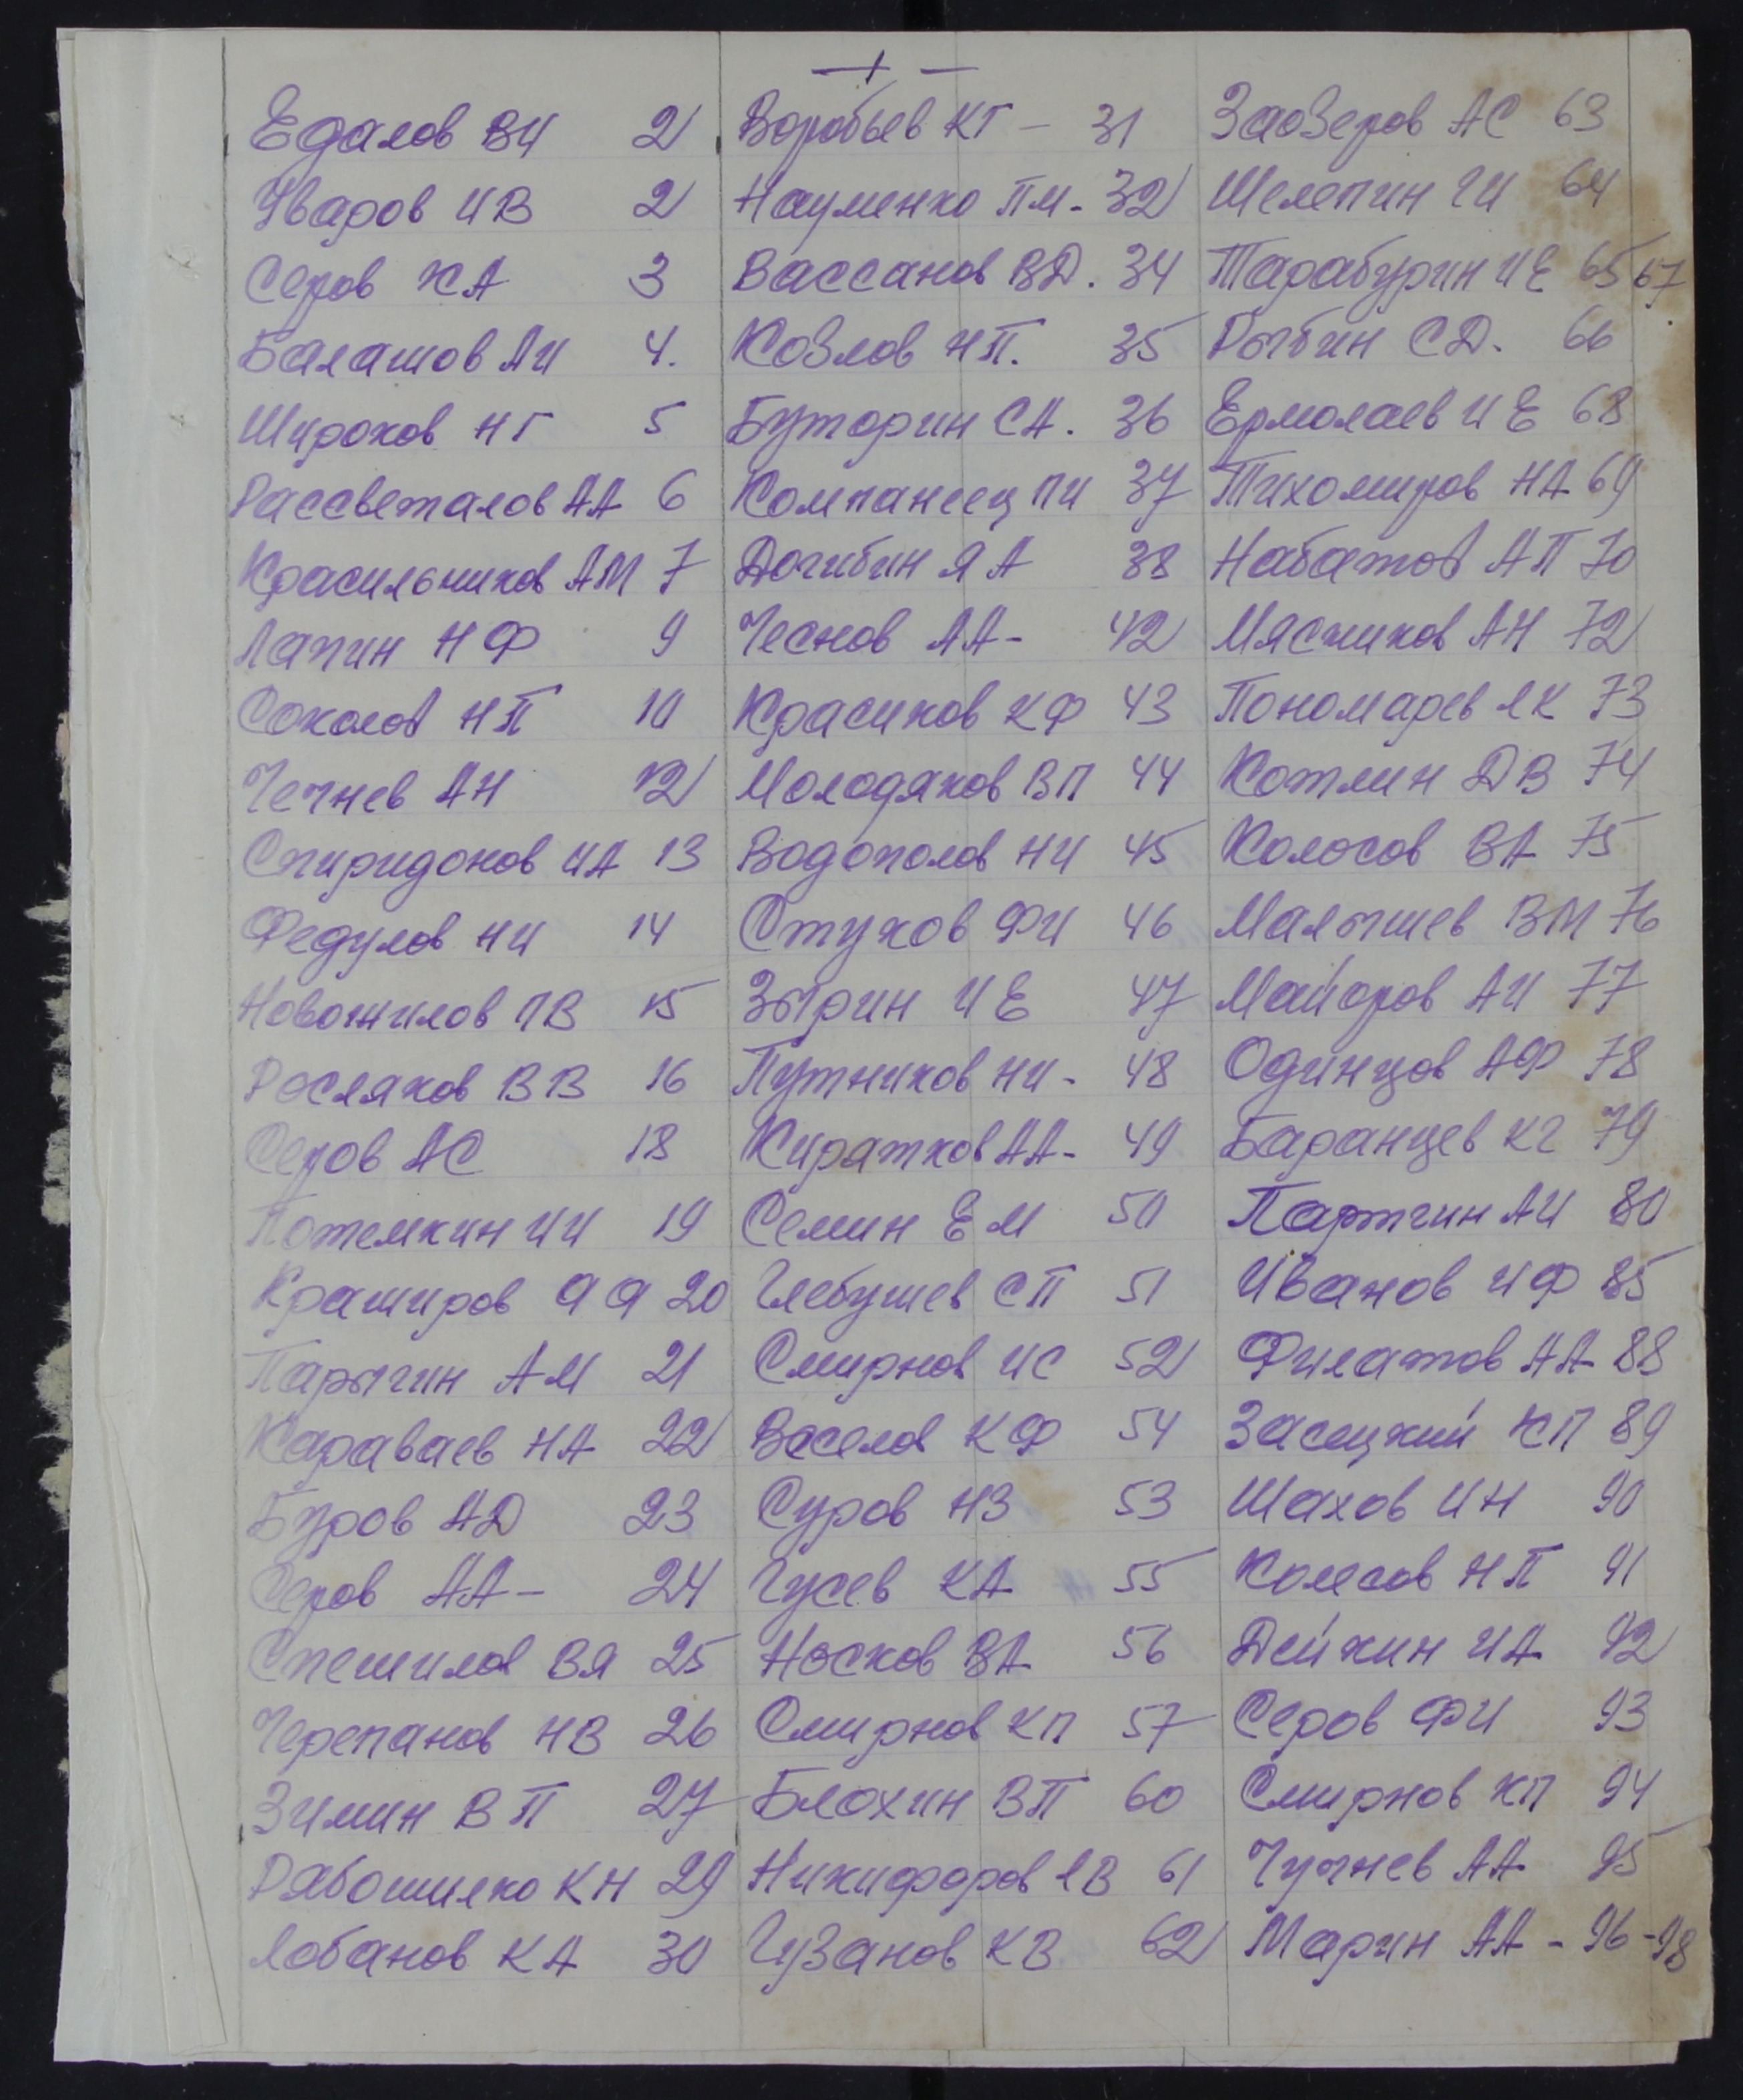 Едалов ВИ 2
Уваров ИВ 2
Серов КА 3
Балашов АИ 4.
Широков НГ 5
Рассветалов АА 6
Красильников АМ 7
Лапин НФ 9
Соколов НП 10
Чечнев АН 12
Спиридонов ИА 13
Федулов НИ 14
Новожилов ПВ 15
Росляков ВВ 16
Серов АС 18
Потемкин ИИ 19
Краширов 20
Парыгин АМ 21
Караваев НА 22
Буров АД 23
Серов АА - 24
Спешилов ВЯ 25
Черепанов НВ 26
Зимин ВП 27
Рябошилко КН 29
Лобанов КА 30
Воробьев КГ - 31
Науменко ПМ - 32
Вассанов ВД. 34
Козлов НП. 35
Буторин СА. 36
Компанеец ПИ 37
Догибин ЯА 38
Чеснов АА - 42
Красиков КФ 43
Молодяков ВП 44
Водополов НИ 45
Стуков ФИ 46
Зырин ИЕ 47
Путников НИ - 48
Киратков АА - 49
Семин ЕМ 50
Глебушев СП 51
Смирнов ИС 52
Веселов КФ 54
Суров НЗ 53
Гусев КА 55
Носков ВА 56
Смирнов КП 57
Блохин ВП 60
Никифоров ЛВ 61
Гузанов КВ 62
Заозеров АС 63
Шелепин ГИ 64
Тарабурин ИЕ 65 67
Рыбин СД. 66
Ермолаев ИЕ 68
Тихомиров НА 69
Набатов АП 70
Мясников АН 72
Пономарев ЛК 73
Котлин ДВ 74
Колосов ВА 75
Малышев ВМ 76
Майоров АИ 77
Одинцов АФ 78
Баранцев КГ 79
Партгин АИ 80
Иванов ИФ 85
Филатов АА 88
Засецкий КП 89
Шахов ИН 90
Колесов НП 91
Дейкин ИА 92
Серов ФИ 93
Смирнов КП 94
Чучнев АА 95
Марин АА - 96 - 98